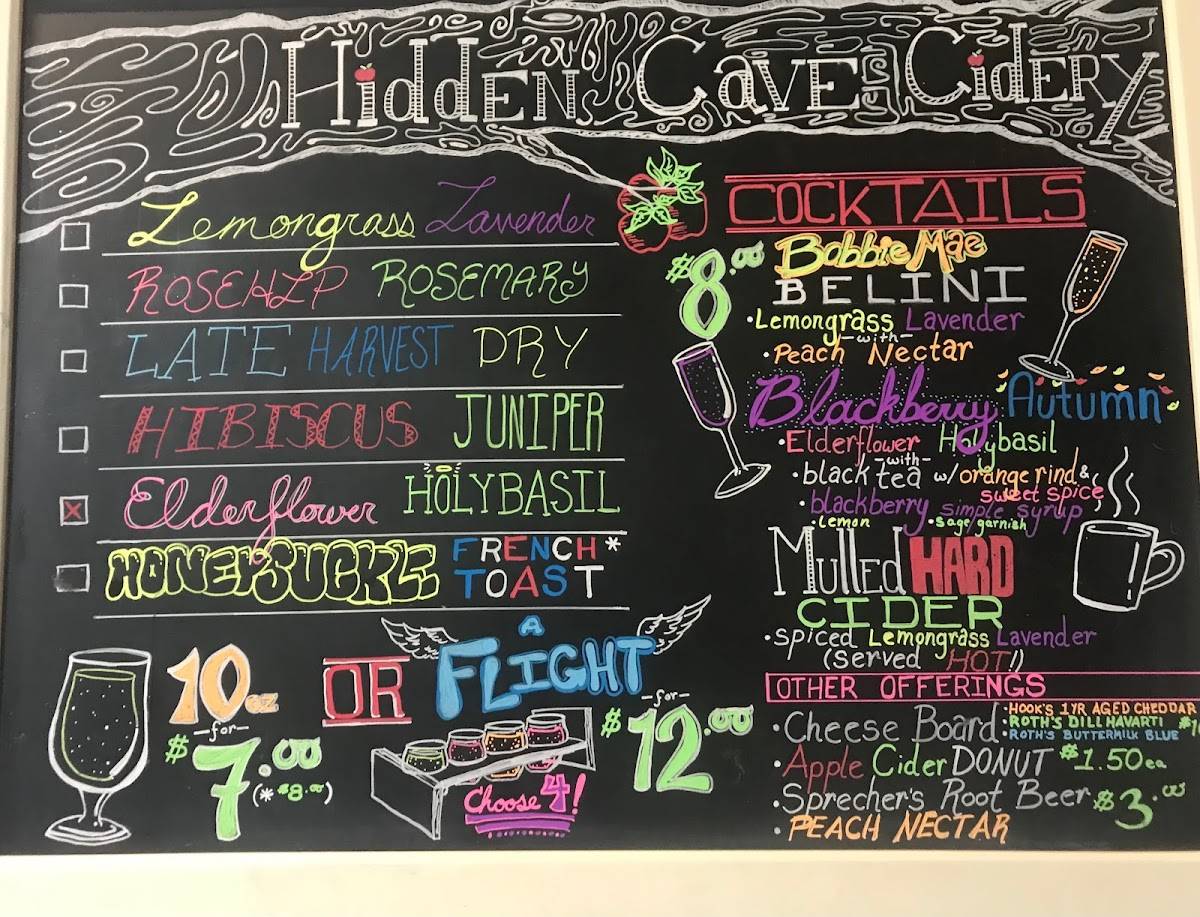 Hidden Cave Cidery
Lemongrass Lavender
ROSEHIP ROSEMARY
LATE HARVEST DRY
HIBISCUS JUNIPER
Elderflower HOLYBASIL
HONEYSUCKLE FRENCH*
TOAST
10 oz
-for-
$7.00
(*$8.00)
OR
A
FLIGHT
-for-
$12.00
Choose 4!
COCKTAILS
$8.00
Bobbie Mae
BELINI
•Lemongrass Lavender
-with-
•Peach Nectar
Blackberry Autumn
•Elderflower Holybasil
-with-
•black tea w/ orange rind &
sweet spice
•blackberry simple syrup
•lemon •sage garnish
Mulled HARD
CIDER
•spiced Lemongrass Lavender
(served HOT!)
OTHER OFFERINGS
•Cheese Board
•HOOK'S 1YR AGED CHEDDAR
•ROTH'S DILL HAVARTI
•ROTH'S BUTTERMILK BLUE
•Apple Cider DONUT $1.50 ea
•Sprecher's Root Beer $3.00
•PEACH NECTAR